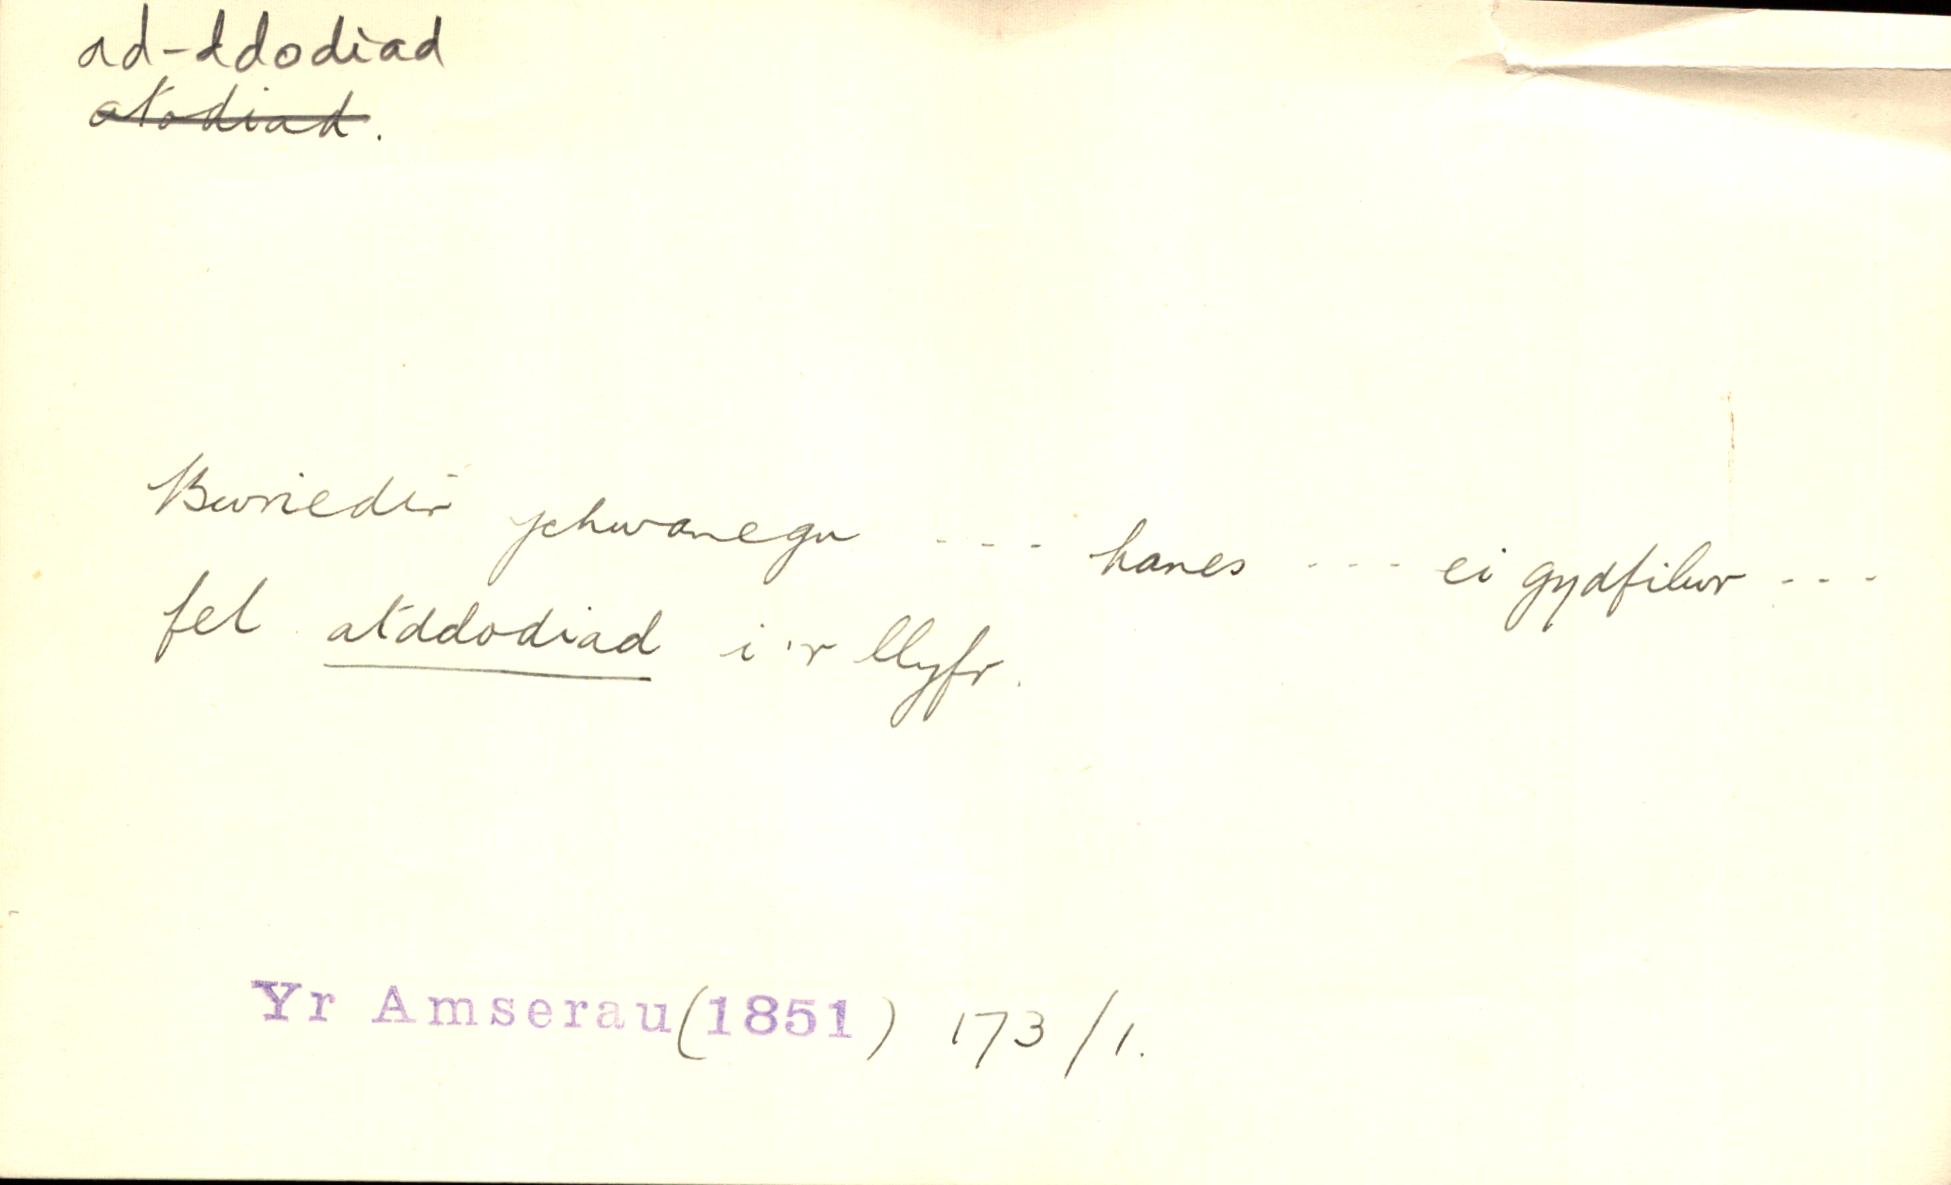 ad-ddodiad
atodiad.
Bwriedir ychwanegu --- hanes --- ei gydfilwr ---
fel atddodiad i'r llyfr.
Yr Amserau (1851) 173/1.